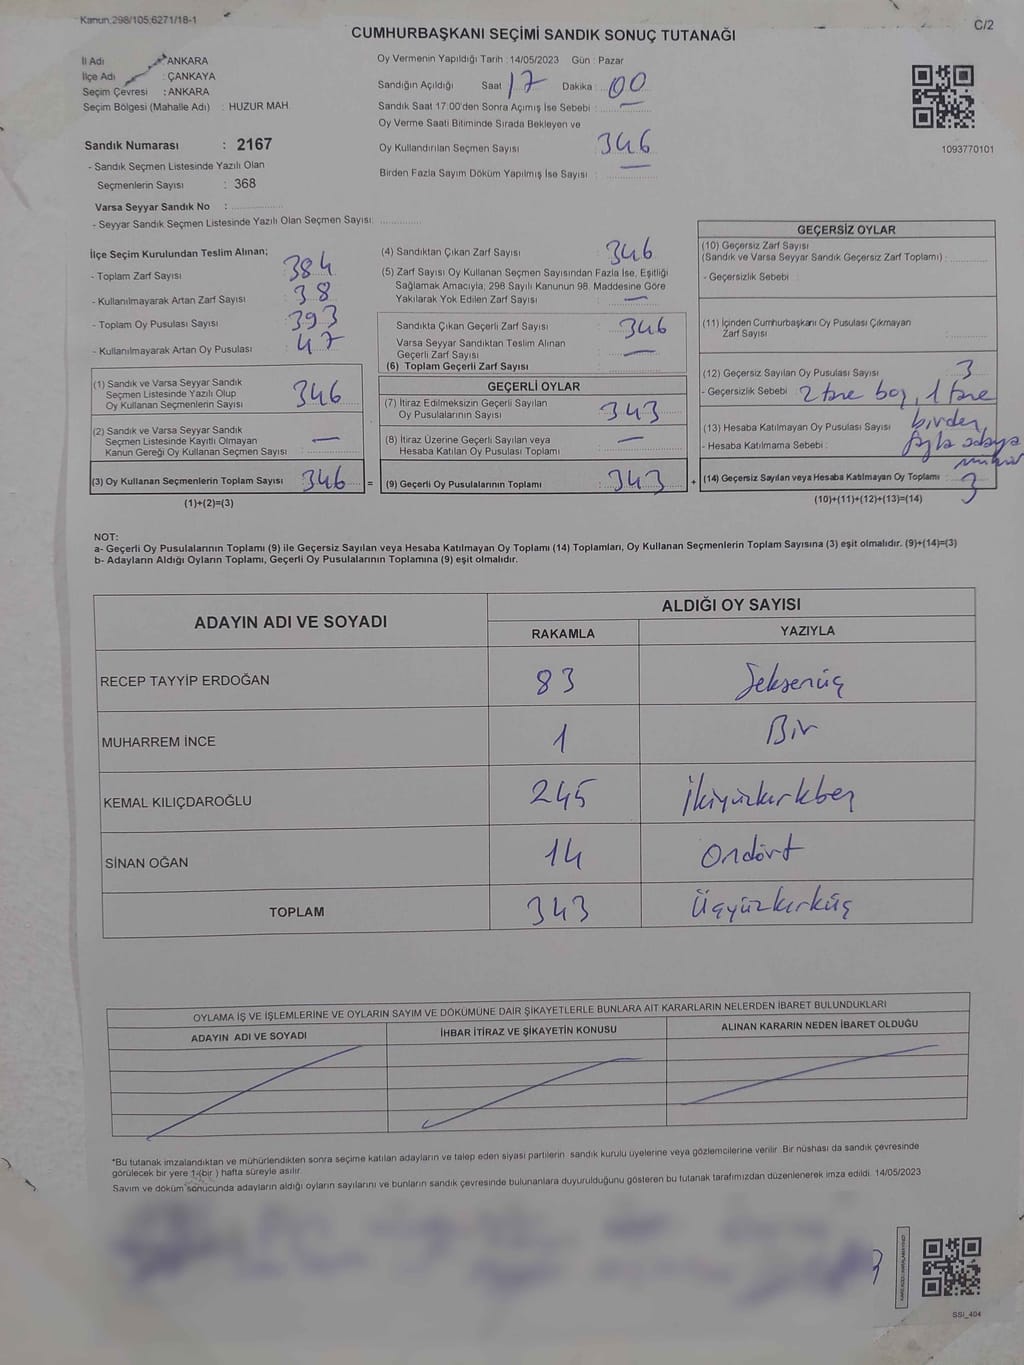 Kanun:298/105;6271/18-1
C/2
CUMHURBAŞKANI SEÇİMİ SANDIK SONUÇ TUTANAĞI
İl Adı : ANKARA
İlçe Adı : ÇANKAYA
Seçim Çevresi : ANKARA
Seçim Bölgesi (Mahalle Adı) : HUZUR MAH.
Sandık Numarası : 2167
- Sandık Seçmen Listesinde Yazılı Olan
Seçmenlerin Sayısı : 368
Varsa Seyyar Sandık No :
- Seyyar Sandık Seçmen Listesinde Yazılı Olan Seçmen Sayısı:
Oy Vermenin Yapıldığı Tarih : 14/05/2023 Gün : Pazar
Sandığın Açıldığı Saat 17 Dakika : 00
Sandık Saat 17:00'den Sonra Açımış İse Sebebi : —
Oy Verme Saati Bitiminde Sırada Bekleyen ve
Oy Kullandırılan Seçmen Sayısı 346
Birden Fazla Sayım Döküm Yapılmış İse Sayısı : —
1093770101
İlçe Seçim Kurulundan Teslim Alınan;
- Toplam Zarf Sayısı : 384
- Kullanılmayarak Artan Zarf Sayısı : 38
- Toplam Oy Pusulası Sayısı : 393
- Kullanılmayarak Artan Oy Pusulası : 47
(1) Sandık ve Varsa Seyyar Sandık
Seçmen Listesinde Yazılı Olup
Oy Kullanan Seçmenlerin Sayısı : 346
(2) Sandık ve Varsa Seyyar Sandık
Seçmen Listesinde Kayıtlı Olmayan
Kanun Gereği Oy Kullanan Seçmen Sayısı : —
(3) Oy Kullanan Seçmenlerin Toplam Sayısı : 346 =
(1)+(2)=(3)
(4) Sandıktan Çıkan Zarf Sayısı : 346
(5) Zarf Sayısı Oy Kullanan Seçmen Sayısından Fazla İse, Eşitliği
Sağlamak Amacıyla; 298 Sayılı Kanunun 98. Maddesine Göre
Yakılarak Yok Edilen Zarf Sayısı : —
Sandıkta Çıkan Geçerli Zarf Sayısı : 346
Varsa Seyyar Sandıktan Teslim Alınan
Geçerli Zarf Sayısı : —
(6) Toplam Geçerli Zarf Sayısı :
GEÇERLİ OYLAR
(7) İtiraz Edilmeksizin Geçerli Sayılan
Oy Pusulalarının Sayısı : 343
(8) İtiraz Üzerine Geçerli Sayılan veya
Hesaba Katılan Oy Pusulası Toplamı : —
(9) Geçerli Oy Pusulalarının Toplamı : 343 +
GEÇERSİZ OYLAR
(10) Geçersiz Zarf Sayısı
(Sandık ve Varsa Seyyar Sandık Geçersiz Zarf Toplamı) :
- Geçersizlik Sebebi :
(11) İçinden Cumhurbaşkanı Oy Pusulası Çıkmayan
Zarf Sayısı :
(12) Geçersiz Sayılan Oy Pusulası Sayısı : 3
- Geçersizlik Sebebi : 2 tane boş, 1 tane
birden
fazla adaya
mühür
(13) Hesaba Katılmayan Oy Pusulası Sayısı
- Hesaba Katılmama Sebebi :
(14) Geçersiz Sayılan veya Hesaba Katılmayan Oy Toplamı : 3
(10)+(11)+(12)+(13)=(14)
NOT:
a- Geçerli Oy Pusulalarının Toplamı (9) ile Geçersiz Sayılan veya Hesaba Katılmayan Oy Toplamı (14) Toplamları, Oy Kullanan Seçmenlerin Toplam Sayısına (3) eşit olmalıdır. (9)+(14)=(3)
b- Adayların Aldığı Oyların Toplamı, Geçerli Oy Pusulalarının Toplamına (9) eşit olmalıdır.
ADAYIN ADI VE SOYADI
ALDIĞI OY SAYISI
RAKAMLA YAZIYLA
RECEP TAYYİP ERDOĞAN 83 Seksenüç
MUHARREM İNCE 1 Bir
KEMAL KILIÇDAROĞLU 245 İkiyüzkırkbeş
SİNAN OĞAN 14 Ondört
TOPLAM 343 Üçyüzkırküç
OYLAMA İŞ VE İŞLEMLERİNE VE OYLARIN SAYIM VE DÖKÜMÜNE DAİR ŞİKAYETLERLE BUNLARA AİT KARARLARIN NELERDEN İBARET BULUNDUKLARI
ADAYIN ADI VE SOYADI İHBAR İTİRAZ VE ŞİKAYETİN KONUSU ALINAN KARARIN NEDEN İBARET OLDUĞU
*Bu tutanak imzalandıktan ve mühürlendikten sonra seçime katılan adayların ve talep eden siyasi partilerin sandık kurulu üyelerine veya gözlemcilerine verilir. Bir nüshası da sandık çevresinde
görülecek bir yere 1-(bir ) hafta süreyle asılır.
Sayım ve döküm sonucunda adayların aldığı oyların sayılarını ve bunların sandık çevresinde bulunanlara duyurulduğunu gösteren bu tutanak tarafımızdan düzenlenerek imza edildi. 14/05/2023
SSİ_404